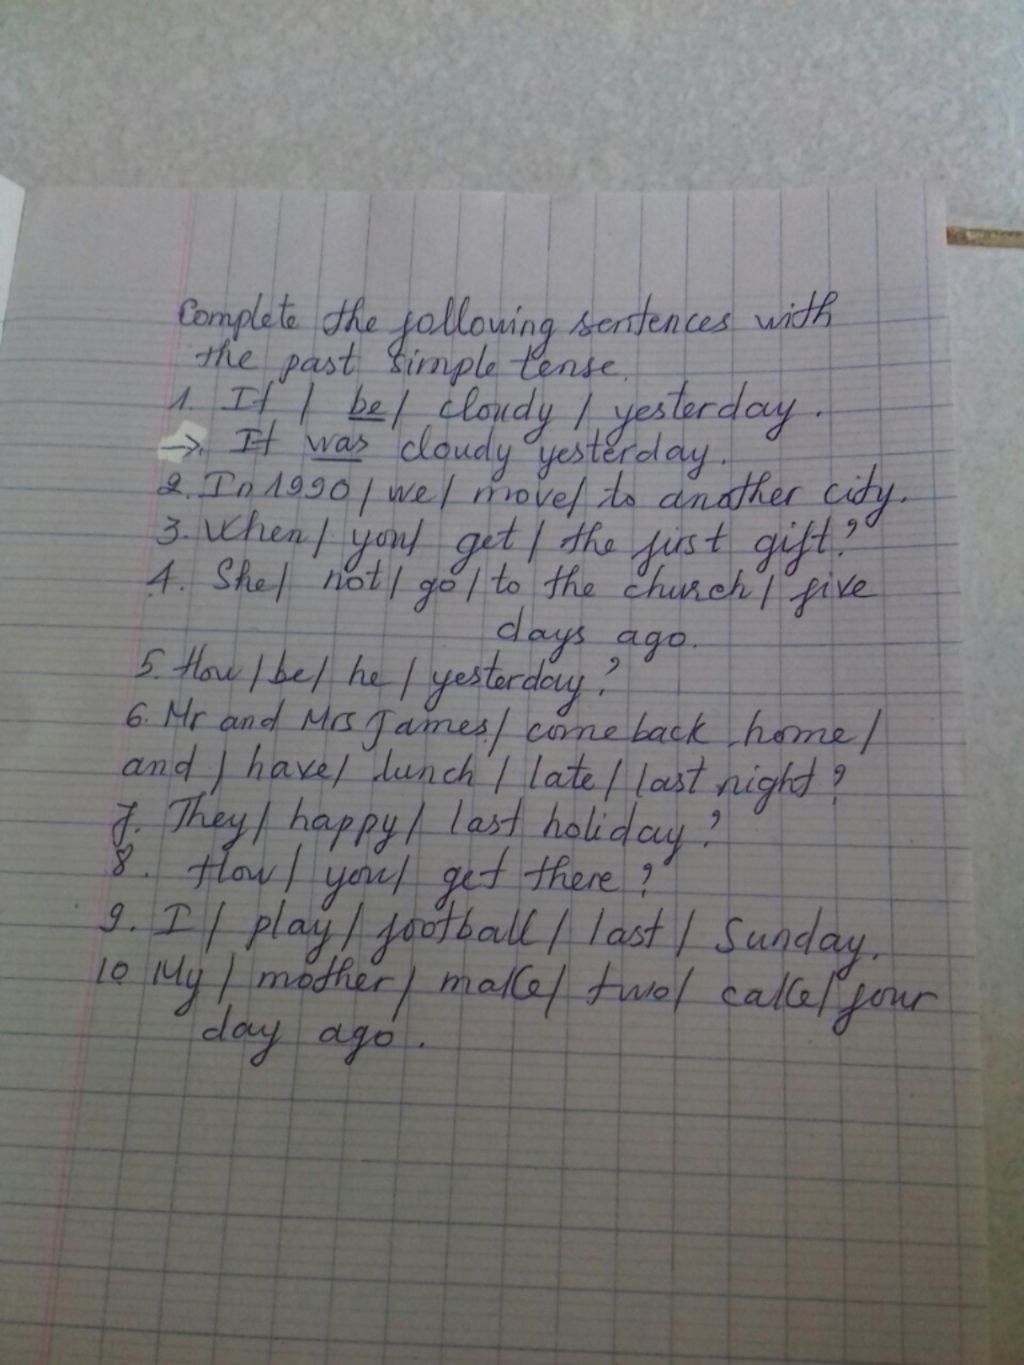 Complete the following sentences with
the past simple tense.
1. It / be / cloudy / yesterday.
→. It was cloudy yesterday.
2. In 1990 / we / move / to another city.
3. When / you / get / the first gift?
4. She / not / go / to the church / five
days ago.
5. How / be / he / yesterday?
6. Mr and Mrs James / come back home /
and / have / lunch / late / last night?
7. They / happy / last holiday?
8. How / you / get there?
9. I / play / football / last / Sunday.
10 My / mother / make / two / cake / four
day ago.